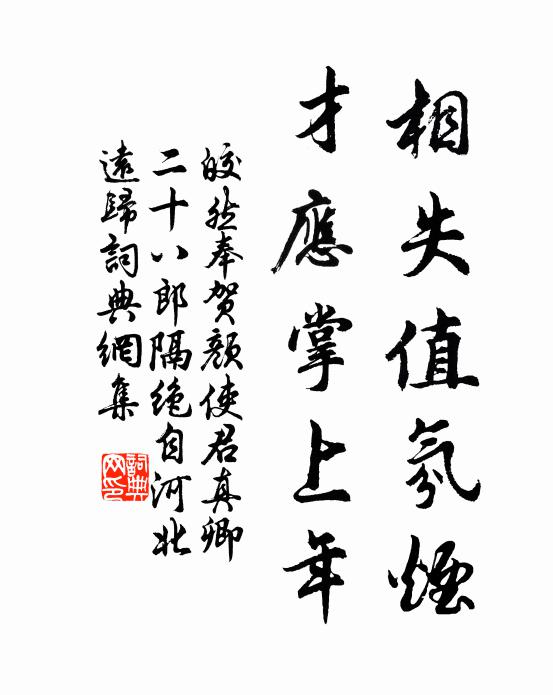 相失值氛煙
才應掌上年
皎然奉贺顏使君真卿
二十八郎隔絶自河北
遠歸詞典網集
詞典网印